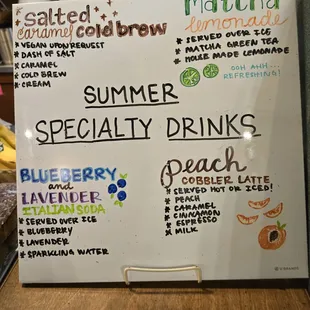 Salted
caramel cold brew
* VEGAN UPON REQUEST
* DASH OF SALT
* CARAMEL
* COLD BREW
* CREAM
Matcha
lemonade
* SERVED OVER ICE
* MATCHA GREEN TEA
* HOUSE MADE LEMONADE
OOH AHH...
REFRESHING!
SUMMER
SPECIALTY DRINKS
BLUEBERRY
and
LAVENDER
ITALIAN SODA
* SERVED OVER ICE
* BLUEBERRY
* LAVENDER
* SPARKLING WATER
Peach
COBBLER LATTE
* SERVED HOT OR ICED!
* PEACH
* CARAMEL
* CINNAMON
* ESPRESSO
* MILK